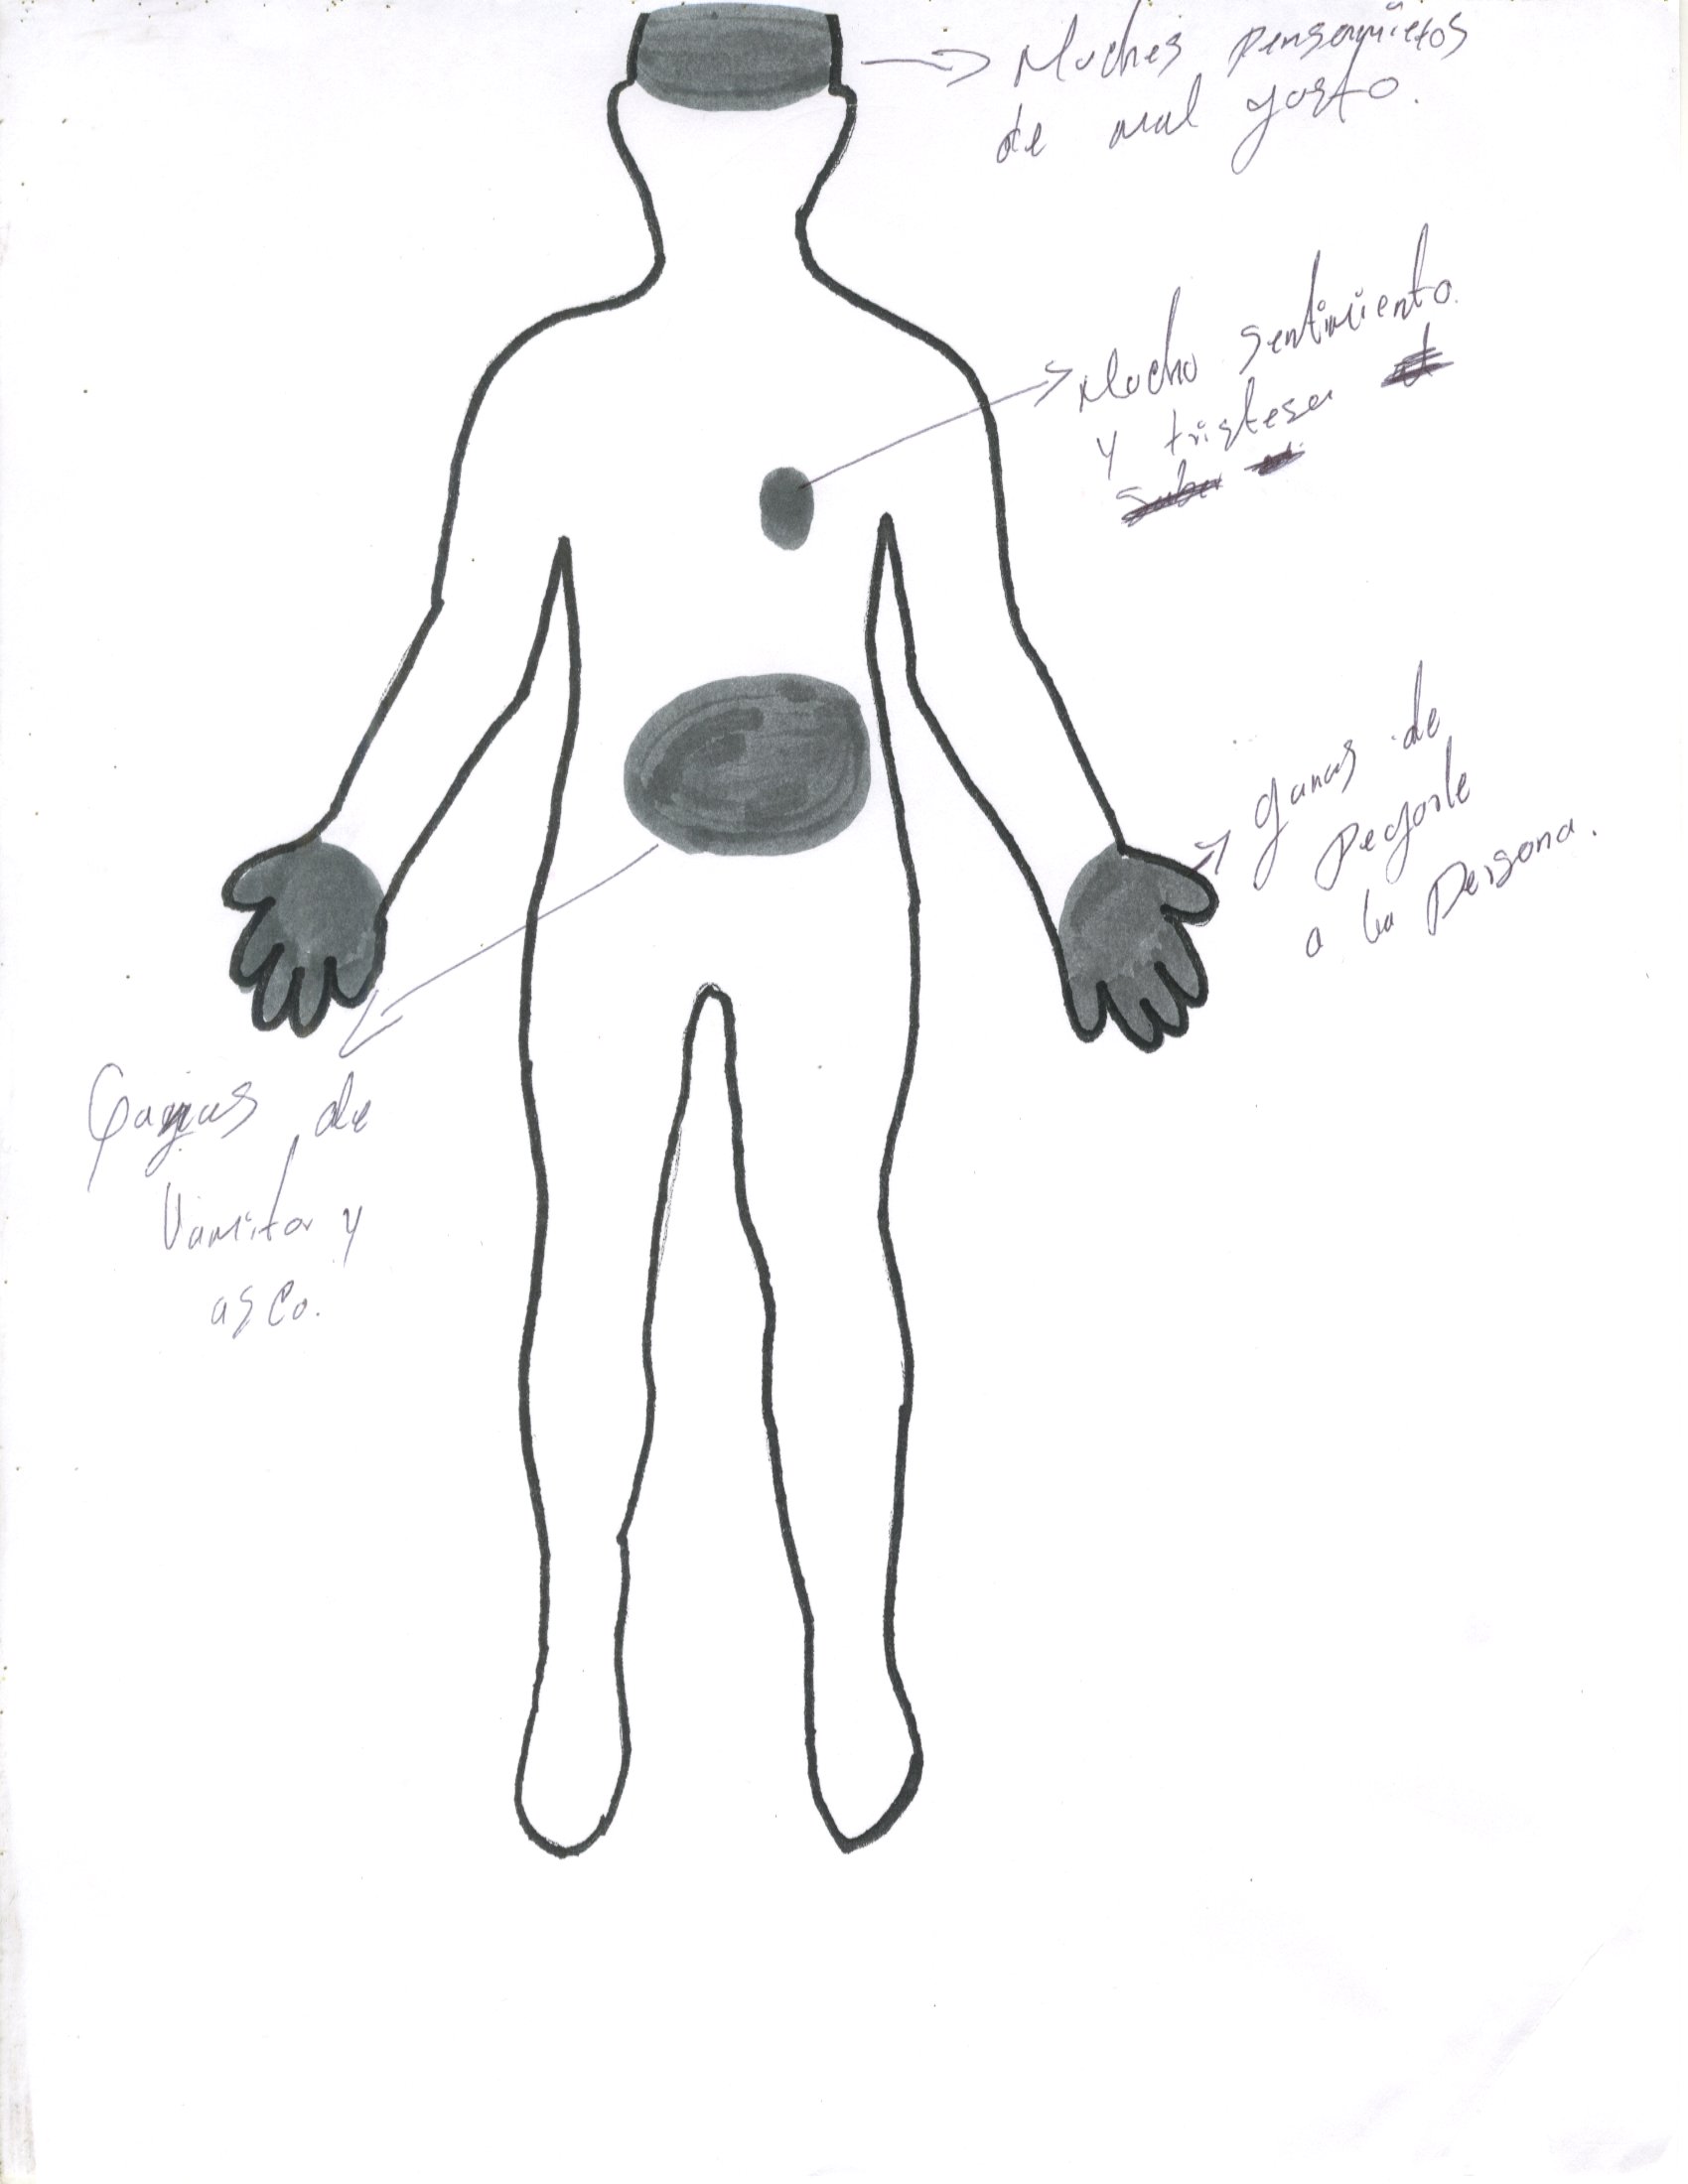 Muchos pensamietos
de mal gusto.
Mucho sentimiento.
y tristesa
ganas de
pegarle
a la persona.
Ganas de
Vomitar y
asco.